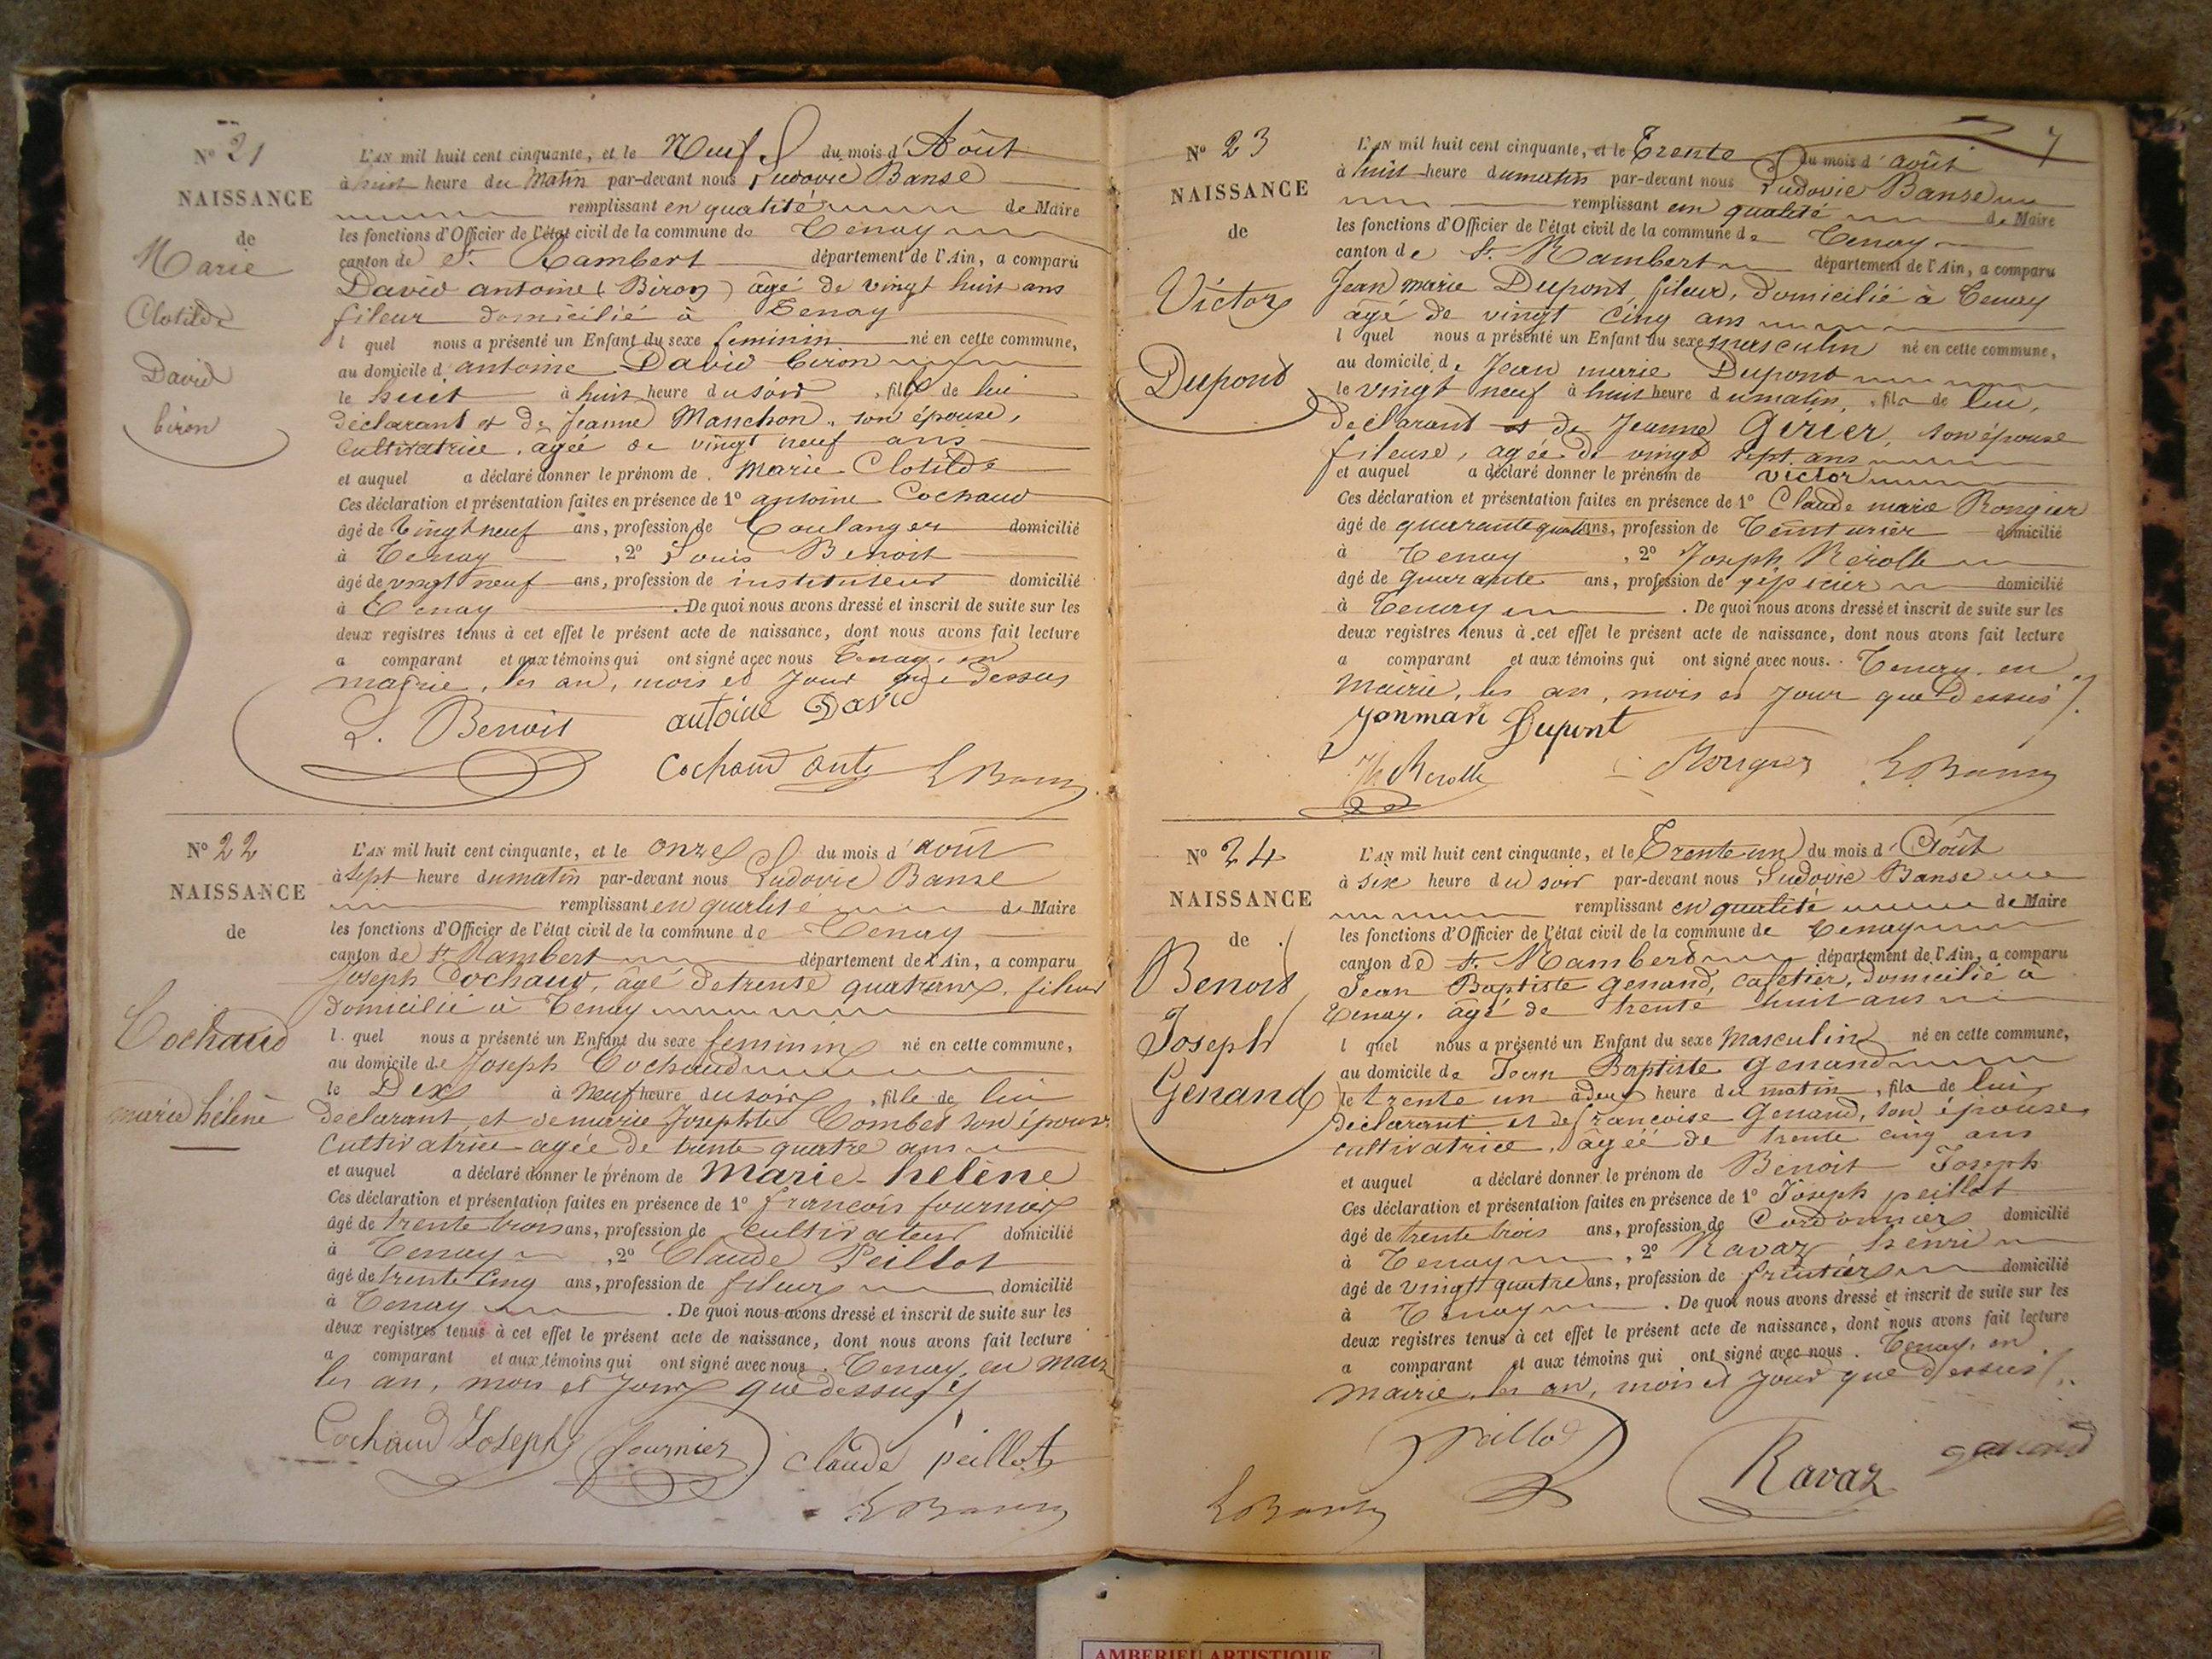 N° 21
NAISSANCE
de
Marie
Clotilde
David
biron
L'AN mil huit cent cinquante, et le Neuf du mois d'Août
à huit heure du Matin par-devant nous Ludovic Banse
remplissant en qualité de Maire
les fonctions d'Officier de l'état civil de la commune de Tenay
canton de St. Rambert département de l'Ain, a comparu
David antoine (Biron) âgé de vingt huit ans
fileur domicilié à Tenay
l quel nous a présenté un Enfant du sexe feminin né en cette commune,
au domicile d'antoine David biron
le huit à huit heure du soir, fille de lui
déclarant et de Jeanne Manchon, son épouse,
Cultivatrice, agée de vingt neuf ans
et auquel a déclaré donner le prénom de Marie Clotilde
Ces déclaration et présentation faites en présence de 1° antoine Cochaud
âgé de vingt neuf ans, profession de boulanger domicilié
à Tenay, 2° Louis Benoit
âgé de vingt neuf ans, profession de instituteur domicilié
à Tenay. De quoi nous avons dressé et inscrit de suite sur les
deux registres tenus à cet effet le présent acte de naissance, dont nous avons fait lecture
a comparant et aux témoins qui ont signé avec nous Tenay, en
mairie, les an, mois et jour que dessus
L. Benoit antoine David
Cochaud ant LBanse
N° 22
NAISSANCE
de
Cochaud
marie hélène
L'AN mil huit cent cinquante, et le onze du mois d'août
à sept heure du matin par-devant nous Ludovic Banse
remplissant en qualité de Maire
les fonctions d'Officier de l'état civil de la commune de Tenay
canton de St. Rambert département de l'Ain, a comparu
Joseph Cochaud, âgé de trente quatre ans, fileur
domicilié à Tenay
l quel nous a présenté un Enfant du sexe feminin né en cette commune,
au domicile de Joseph Cochaud
le Dix à neuf heure du soir, fille de lui
déclarant et de marie Josephte Combet son épouse
Cultivatrice agée de trente quatre ans
et auquel a déclaré donner le prénom de Marie-hélène
Ces déclaration et présentation faites en présence de 1° françois fournier
âgé de trente trois ans, profession de cultivateur domicilié
à Tenay, 2° Claude Peillot
âgé de trente cinq ans, profession de fileur domicilié
à Tenay. De quoi nous avons dressé et inscrit de suite sur les
deux registres tenus à cet effet le présent acte de naissance, dont nous avons fait lecture
a comparant et aux témoins qui ont signé avec nous. Tenay, en mair
les an, mois et jour que dessus
Cochaud Joseph fournier Claude peillot
LBanse
7
N° 23
NAISSANCE
de
Victor
Dupont
L'AN mil huit cent cinquante, et le Trente du mois d'août
à huit heure du matin par-devant nous Ludovic Banse
remplissant en qualité de Maire
les fonctions d'Officier de l'état civil de la commune de Tenay
canton de St. Rambert département de l'Ain, a comparu
Jean marie Dupont, fileur, domicilié à Tenay
âgé de vingt cinq ans
l quel nous a présenté un Enfant du sexe masculin né en cette commune,
au domicile de Jean marie Dupont
le vingt neuf à huit heure du matin, fils de lui,
declarant et de Jeanne Girier, son épouse
fileuse, agée de vingt sept ans
et auquel a déclaré donner le prénom de victor
Ces déclaration et présentation faites en présence de 1° Claude marie Rongier
âgé de quarante quatre ans, profession de Teinturier domicilié
à Tenay, 2° Joseph Rérolle
âgé de quarante ans, profession de épicier domicilié
à Tenay. De quoi nous avons dressé et inscrit de suite sur les
deux registres tenus à cet effet le présent acte de naissance, dont nous avons fait lecture
a comparant et aux témoins qui ont signé avec nous. Tenay, en
mairie, les an, mois et jour que dessus
janmari Dupont
Rerolle Rongier LBanse
N° 24
NAISSANCE
de
Benoit
Joseph
Genand
L'AN mil huit cent cinquante, et le Trente-un du mois d'Août
à six heure du soir par-devant nous Ludovic Banse
remplissant en qualité de Maire
les fonctions d'Officier de l'état civil de la commune de Tenay
canton de St. Rambert département de l'Ain, a comparu
Jean Baptiste Genand, cafetier, domicilié à
Tenay, âgé de trente huit ans
l quel nous a présenté un Enfant du sexe Masculin né en cette commune,
au domicile de Jean Baptiste Genand
le trente un à deux heure du matin, fils de lui
declarant et de françoise Genand, son épouse,
cultivatrice, agée de trente cinq ans
et auquel a déclaré donner le prénom de Benoit Joseph
Ces déclaration et présentation faites en présence de 1° Joseph peillot
âgé de trente trois ans, profession de Cordonnier domicilié
à Tenay, 2° Ravaz, henri
âgé de vingt quatre ans, profession de domicilié
à Tenay. De quoi nous avons dressé et inscrit de suite sur les
deux registres tenus à cet effet le présent acte de naissance, dont nous avons fait lecture
a comparant et aux témoins qui ont signé avec nous. Tenay, en
mairie, les an, mois et jour que dessus
Peillod Ravaz genand
LBanse
AMBERIEU ARTISTIQUE